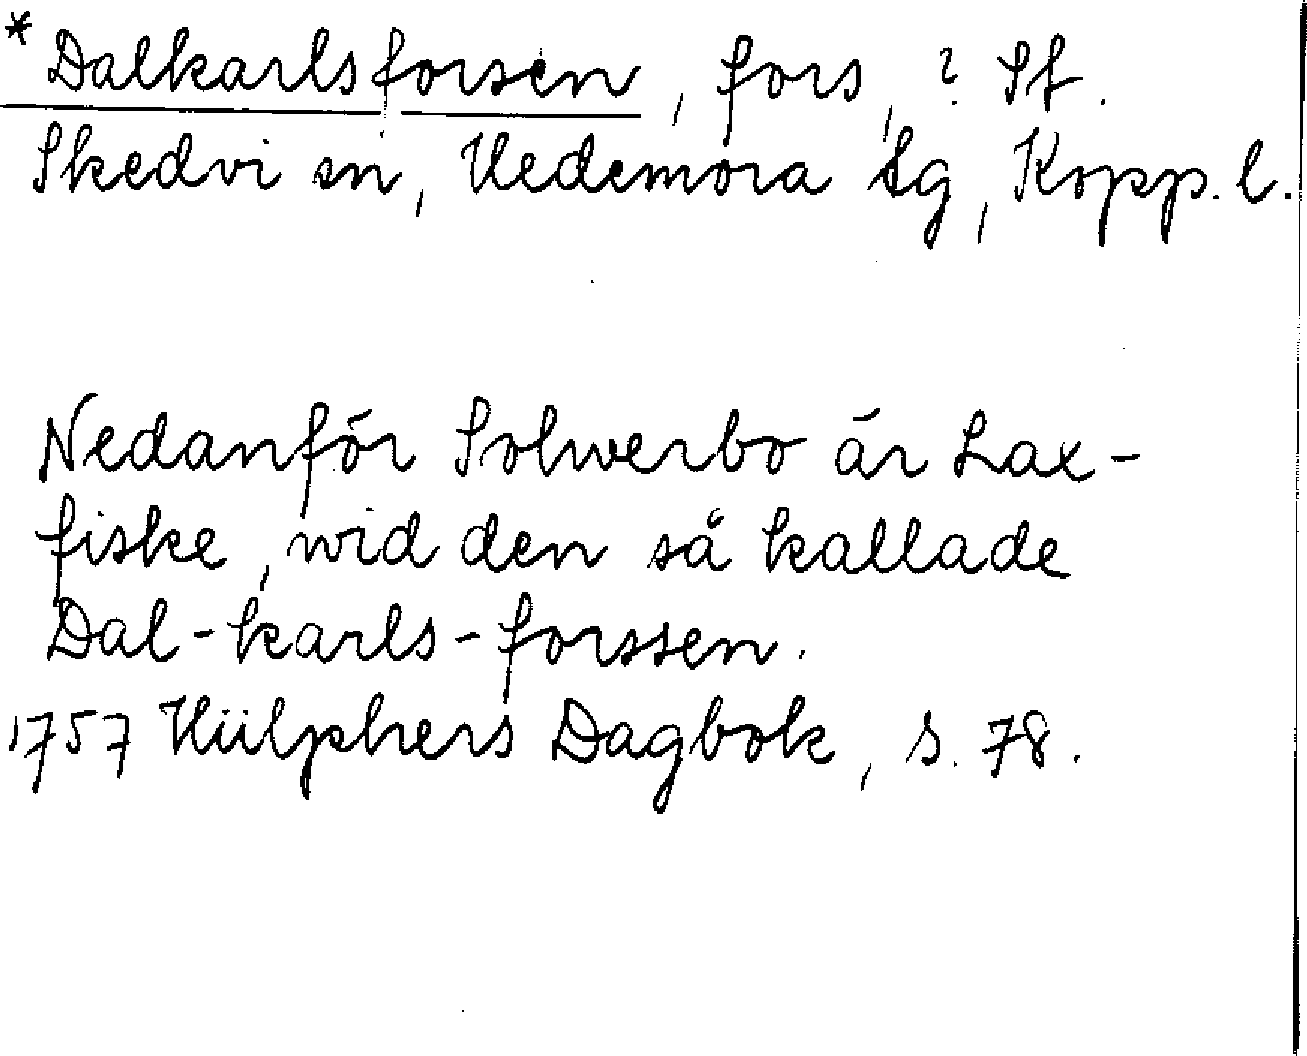 * Dalkarlsforsen, fors, ? St.
Skedvi sn, Hedemora tg, Kopp. l.
Nedanför Solwerbo är Lax-
fiske, wid den så kallade
Dal-karls-forssen.
1757 Hülphers Dagbok, s. 78.